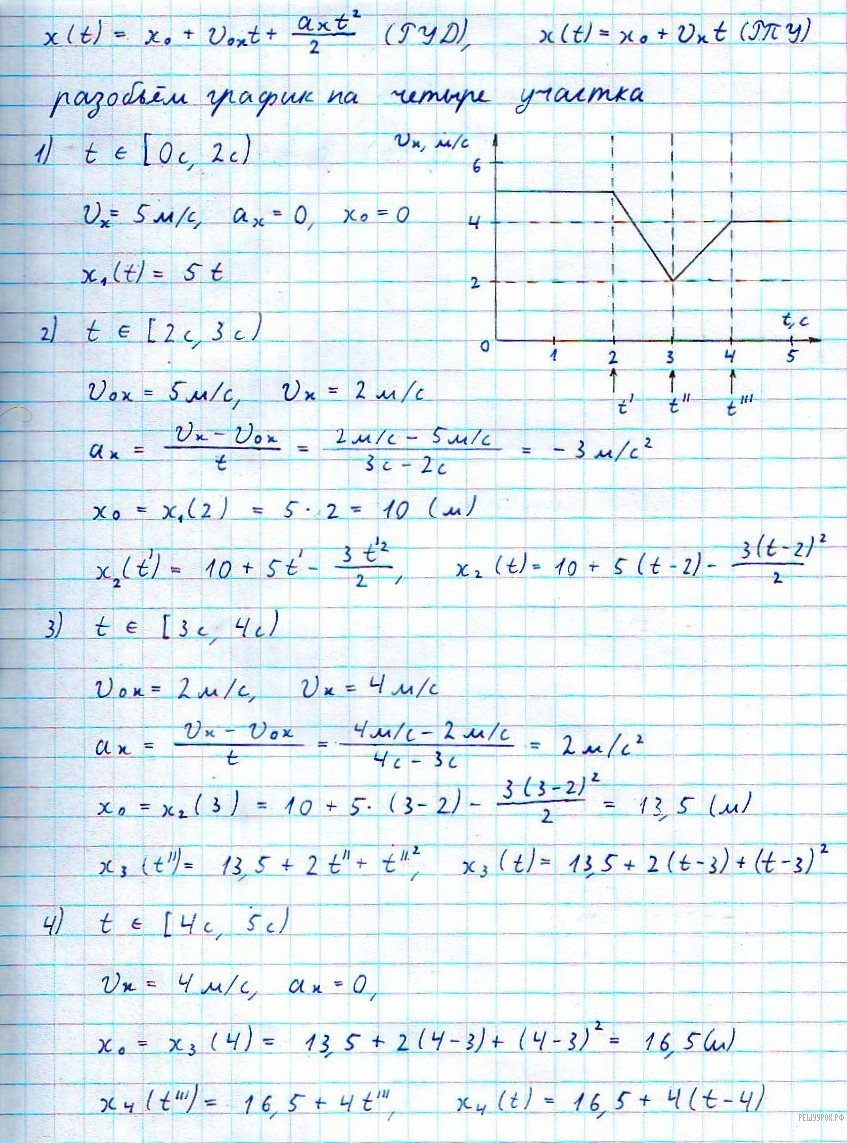 x(t) = x₀ + v₀ₓt + aₓt²/2 (РУД), x(t) = x₀ + vₓt (РПУ)
разобьём график на четыре участка
1) t ∈ [0с, 2с)
vₓ = 5 м/с, aₓ = 0, x₀ = 0
x₁(t) = 5t
vₓ, м/с
6
4
2
0 1 2 3 4 5
t, с
t' t'' t'''
2) t ∈ [2с, 3с)
v₀ₓ = 5 м/с, vₓ = 2 м/с
aₓ = (vₓ - v₀ₓ)/t = (2 м/с - 5 м/с)/(3с - 2с) = -3 м/с²
x₀ = x₁(2) = 5 · 2 = 10 (м)
x₂(t') = 10 + 5t' - 3t'²/2, x₂(t) = 10 + 5(t-2) - 3(t-2)²/2
3) t ∈ [3с, 4с)
v₀ₓ = 2 м/с, vₓ = 4 м/с
aₓ = (vₓ - v₀ₓ)/t = (4 м/с - 2 м/с)/(4с - 3с) = 2 м/с²
x₀ = x₂(3) = 10 + 5·(3-2) - 3(3-2)²/2 = 13,5 (м)
x₃(t'') = 13,5 + 2t'' + t''², x₃(t) = 13,5 + 2(t-3) + (t-3)²
4) t ∈ [4с, 5с)
vₓ = 4 м/с, aₓ = 0,
x₀ = x₃(4) = 13,5 + 2(4-3) + (4-3)² = 16,5 (м)
x₄(t''') = 16,5 + 4t''', x₄(t) = 16,5 + 4(t-4)
РЕШУУРОК.РФ